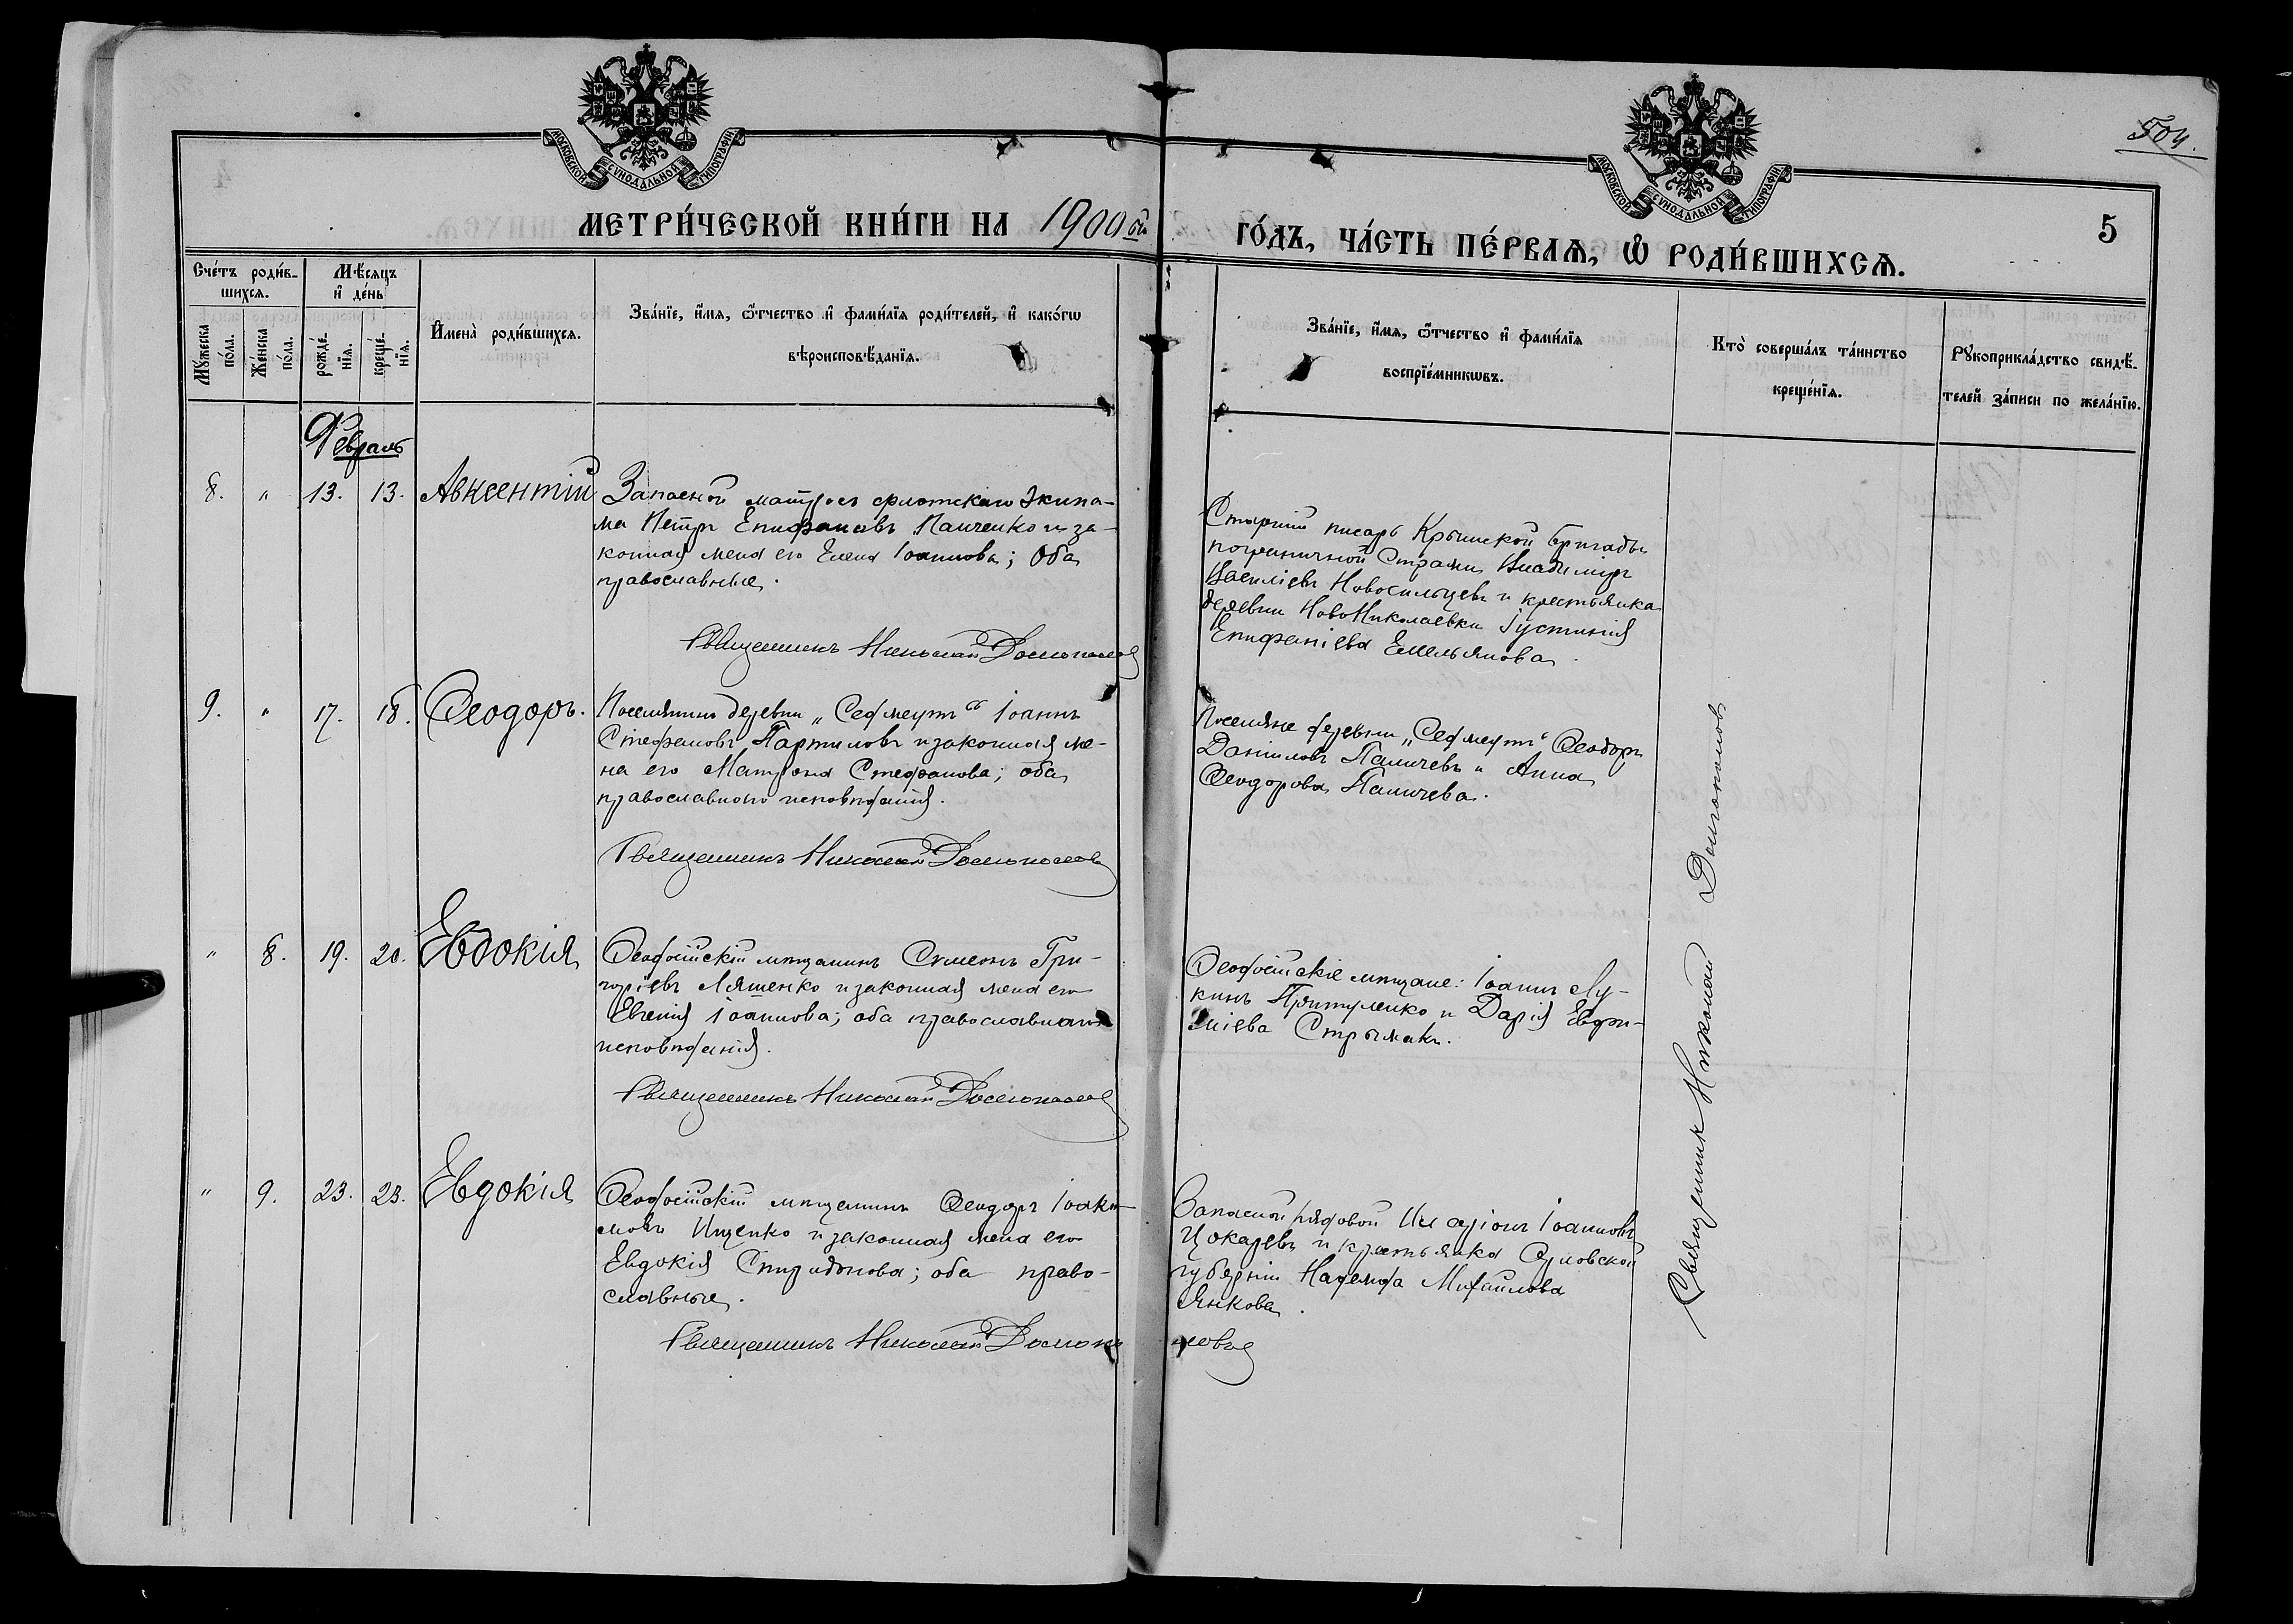 504.
5
МОСКОВСКОЙ СѴНОДАЛЬНОЙ ТИПОГРАФІИ
МОСКОВСКОЙ СѴНОДАЛЬНОЙ ТИПОГРАФІИ
МЕТРИ́ЧЕСКОЙ КНИ́ГИ НА 1900 ый
ГО́ДЪ, ЧА́СТЬ ПЕ́РВАѦ, Ѡ҆ РОДИ́ВШИХСѦ.
Сче́тъ роди́в-
шихсѧ.
Мѣ́сѧцъ
и҆ де́нь
Мꙋ́жеска
по́ла.
Же́нска
по́ла.
рожде́-
нїѧ.
креще́-
нїѧ.
И҆мена̀ роди́вшихсѧ.
Зва́нїе, и҆́мѧ, ѻ҆́тчество и҆ фами́лїѧ роди́телей, и҆ како́гѡ
вѣроисповѣ́данїѧ.
Зва́нїе, и҆́мѧ, ѻ҆́тчество и҆ фами́лїѧ
воспрїе́мникѡвъ.
Кто̀ соверша́лъ та́инство
креще́нїѧ.
Рꙋкоприкла́дство свидѣ́-
телей за́писи по жела́нїю.
Февраль
8. " 13. 13. Авксентій
Запасной матросъ флотскаго экипа-
жа Петръ Епифановъ Панченко и за-
конная жена его Елена Іоаннова; оба
православные.
Священникъ Николай Долгополовъ
Старшій писарь Крымской бригады
пограничной Стражи Владиміръ
Василіевъ Новосильцевъ и крестьянка
деревни НовоНиколаевки Іустинія
Епифаніева Емельянова.
9. " 17. 18. Ѳеодоръ.
Поселянинъ деревни „Седжеутъ“ Іоаннъ
Стефановъ Партиловъ и законная же-
на его Матрона Стефанова; оба
православнаго исповѣданія.
Священникъ Николай Долгополовъ
Поселяне деревни „Седжеутъ“ Ѳеодоръ
Даніиловъ Паличевъ и Анна
Ѳеодорова Паличева.
" 8. 19. 20. Евдокія
Ѳеодосійскій мѣщанинъ Симеонъ Гри-
горіевъ Ляшенко и законная жена его
Евгенія Іоаннова; оба православнаго
исповѣданія.
Священникъ Николай Долгополовъ
Ѳеодосійскіе мѣщане: Іоаннъ Лу-
кинъ Притуленко и Дарія Евфи-
міева Стрымакъ.
" 9. 23. 23. Евдокія
Ѳеодосійскій мѣщанинъ Ѳеодоръ Іоаки-
мовъ Ищенко и законная жена его
Евдокія Спиридонова; оба право-
славные.
Священникъ Николай Долгопо-
ловъ
Запасной рядовой Иларіонъ Іоанновъ
Цокаревъ и крестьянка Орловской
губерніи Надежда Михайлова
Янкова.
Священникъ Николай Долгополовъ